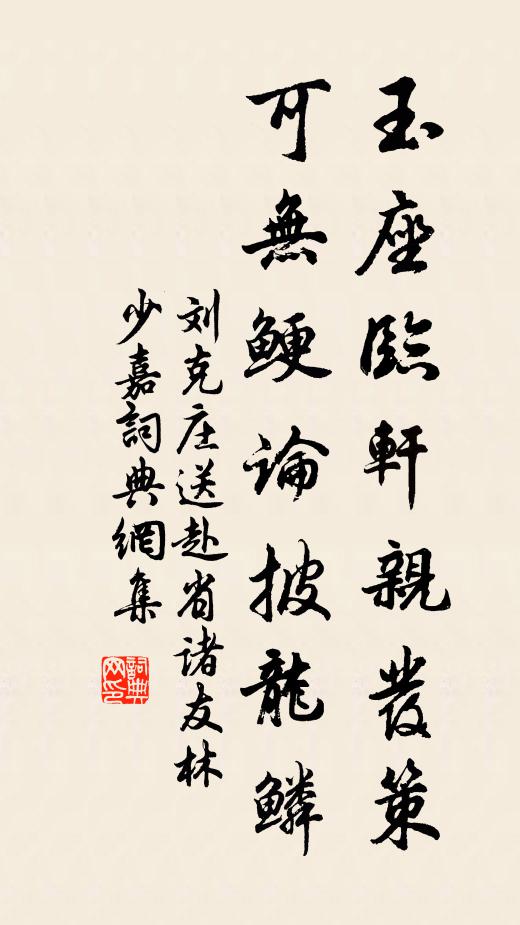 玉座臨軒親發策
可無鯁論披龍鱗
刘克庄送赴省诸友林
少嘉詞典網集
詞典網印